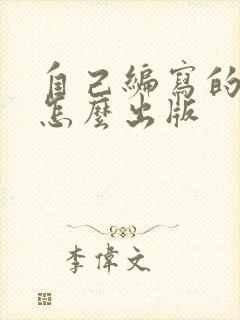 自己編寫的
怎麼出版
李偉文